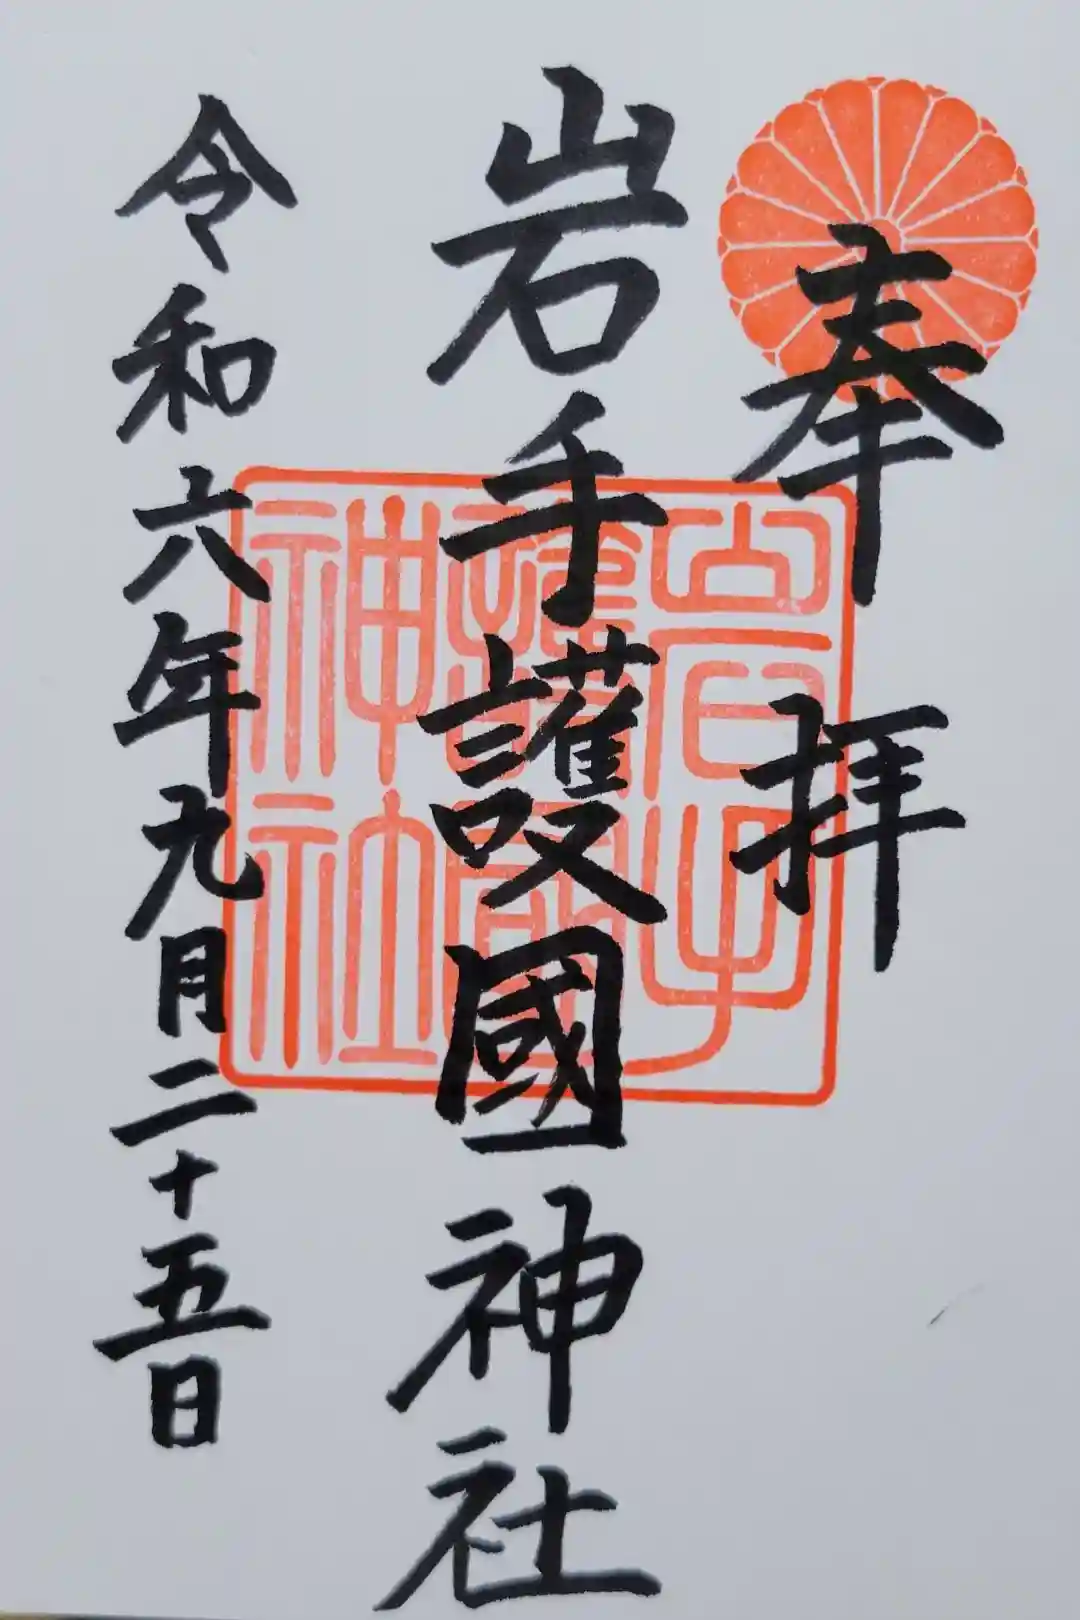 奉拝
岩手護國神社
令和六年九月二十五日
岩手
護國
神社